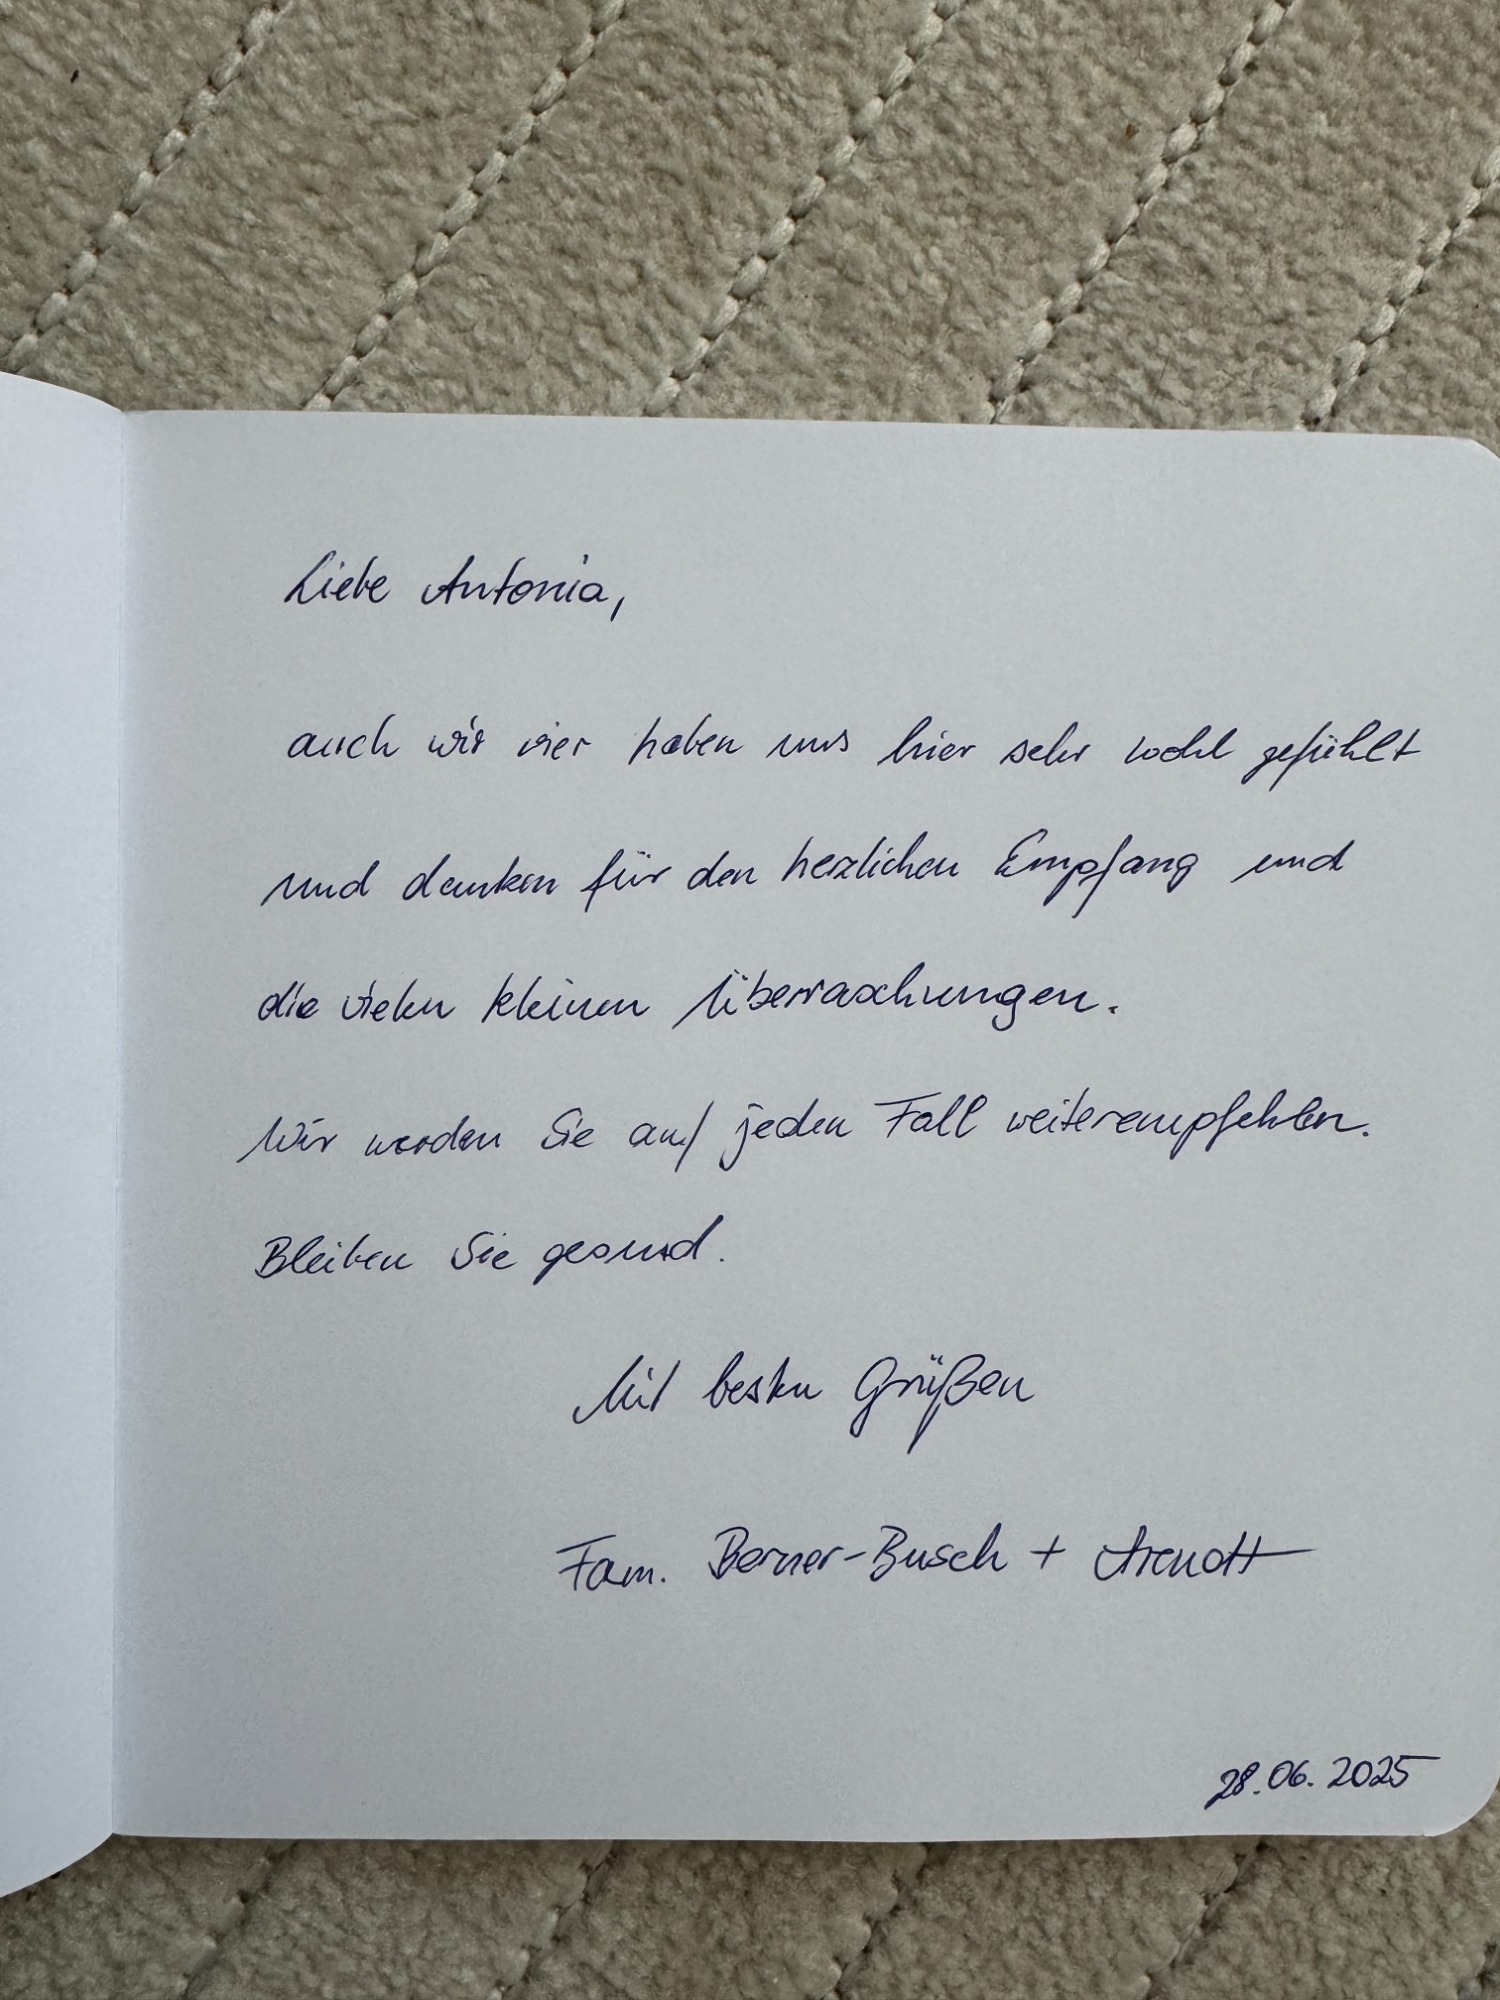 Liebe Antonia,
auch wir vier haben uns hier sehr wohl gefühlt
und danken für den herzlichen Empfang und
die vielen kleinen Überraschungen.
Wir werden Sie auf jeden Fall weiterempfehlen.
Bleiben Sie gesund.
Mit besten Grüßen
Fam. Berner-Busch + Arendt
28.06.2025